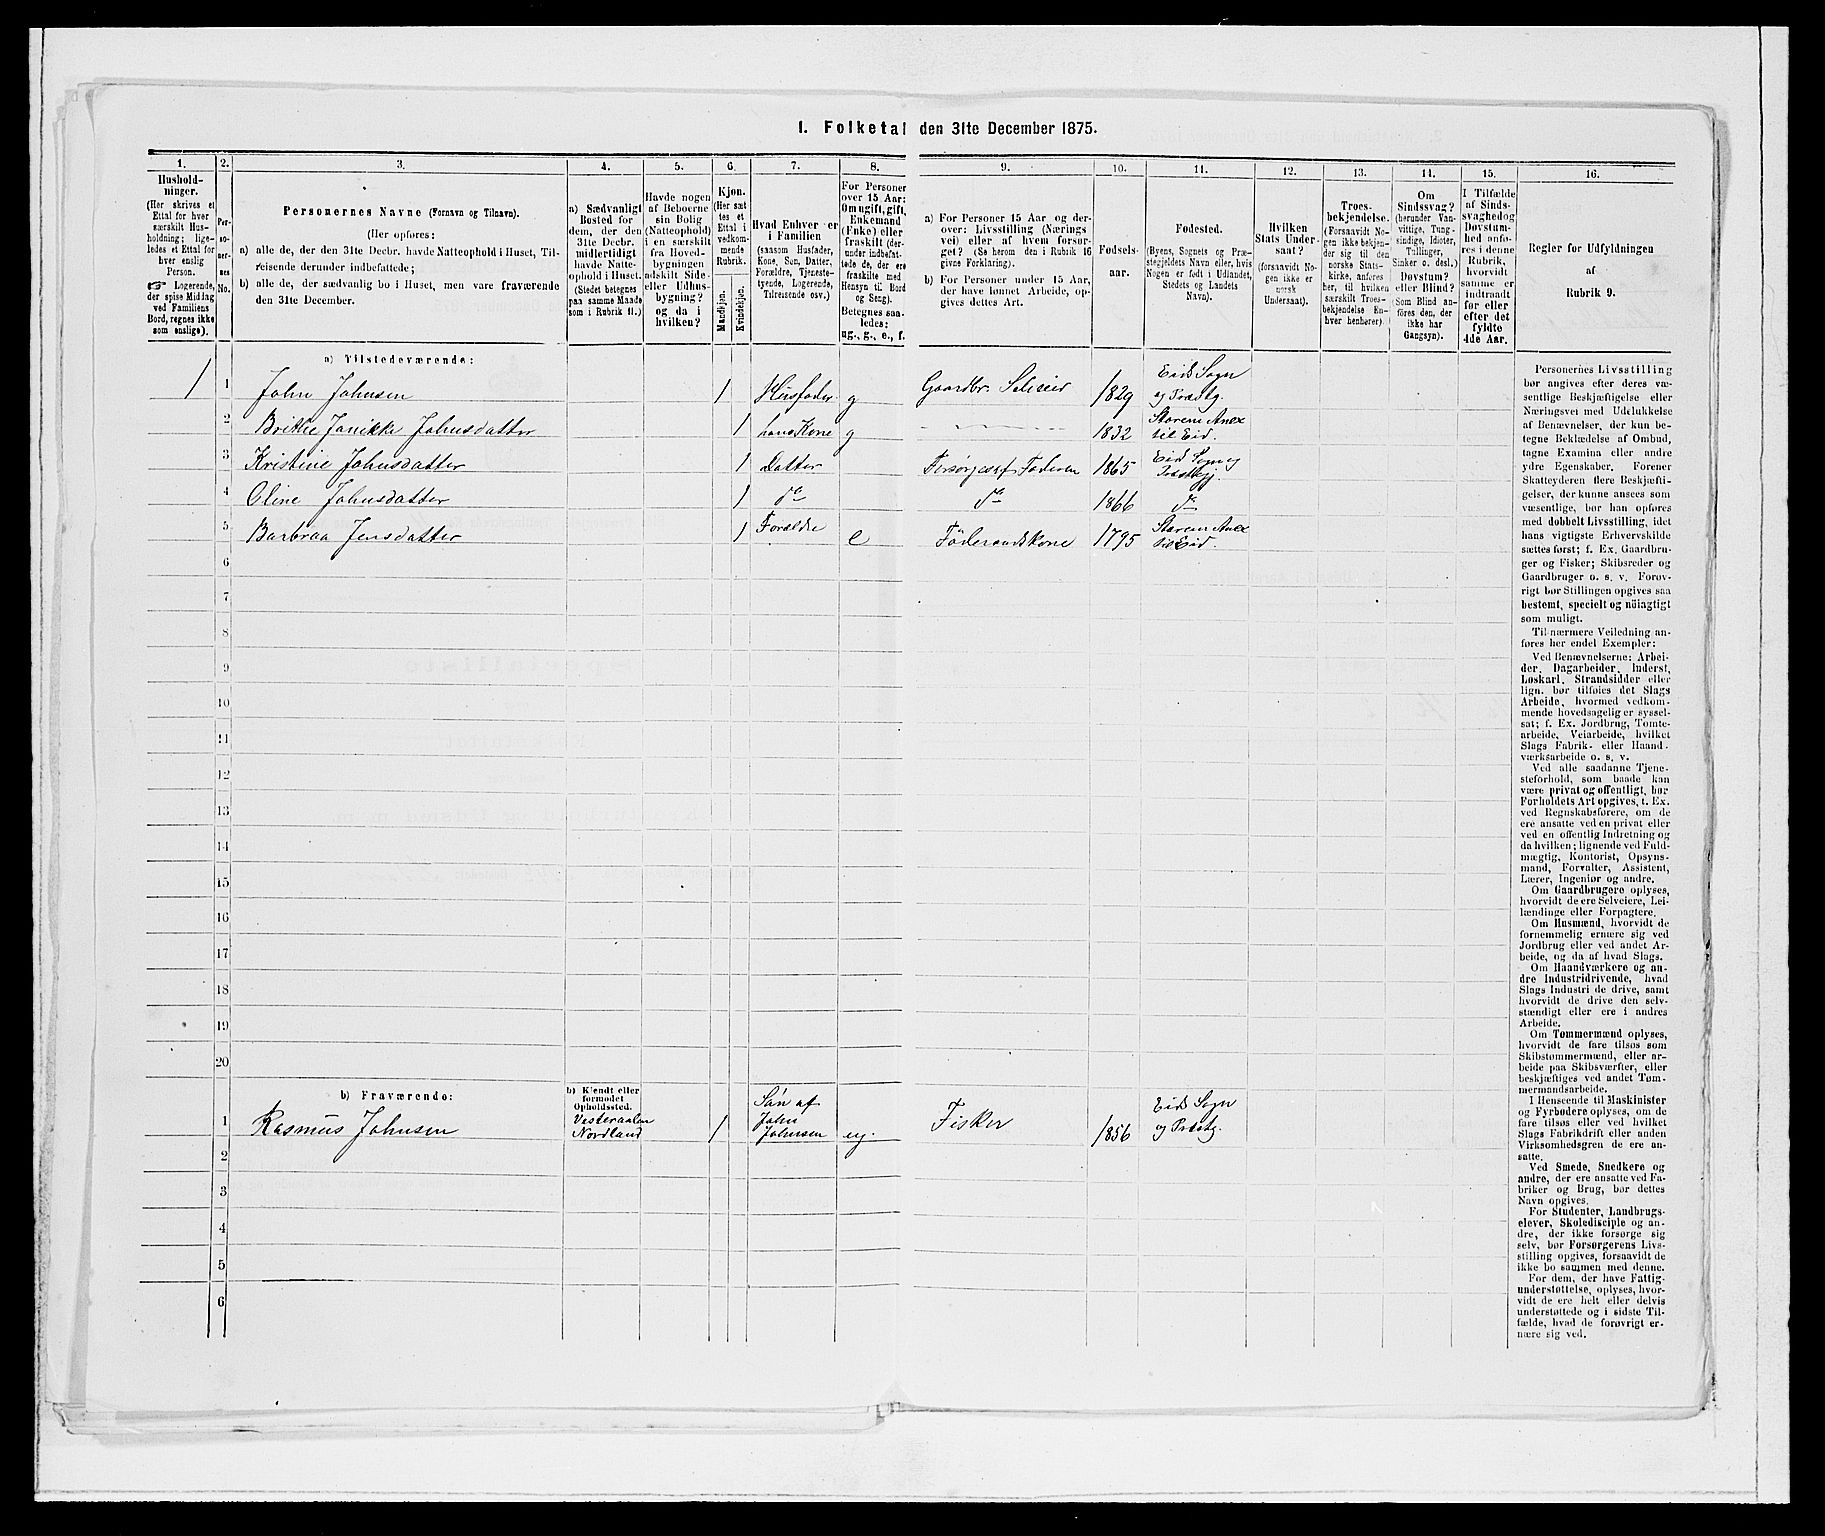 1. Folketal den 31te December 1875.
1. 2. 3. 4. 5. 6. 7. 8. 9. 10. 11. 12. 13. 14. 15. 16.
Hushold-
ninger.
(Her skrives et
Ettal for hver
særskilt Hus-
holdning; lige-
ledes et Ettal for
hver enslig
Person.
☞ Logerende,
der spise Middag
ved Familiens
Bord, regnes ikke
som enslige).
Per-
so-
ner-
nes
No.
Personernes Navne (Fornavn og Tilnavn).
(Her opføres:
a) alle de, der den 31te Decbr. havde Natteophold i Huset, Til-
reisende derunder indbefattede;
b) alle de, der sædvanlig bo i Huset, men vare fraværende
den 31te December.
a) Sædvanligt
Bosted for
dem, der den
31te Decbr.
midlertidigt
havde Natte-
ophold i Huset.
(Stedet betegnes
paa samme Maade
som i Rubrik 11.)
Havde nogen
af Beboerne
sin Bolig
(Natteophold)
i en særskilt
fra Hoved-
bygningen
adskilt Side-
eller Udhus-
bygning?
og da i
hvilken?
Kjøn.
(Her sæt
tes et
Ettal i
vedkom-
mende
Rubrik.
Mandkjøn.
Kvindekjøn.
Hvad Enhver er
i Familien
(saasom Husfader,
Kone, Søn, Datter,
Forældre, Tjeneste-
tyende, Logerende,
Tilreisende osv.)
For Personer
over 15 Aar:
Om ugift, gift,
Enkemand
(Enke) eller
fraskilt (der-
under indbefat-
tede de, der ere
fraskilte med
Hensyn til Bord
og Seng).
Betegnes saa-
ledes:
ug., g., e., f.
a) For Personer 15 Aar og der-
over: Livsstilling (Nærings
vei) eller af hvem forsør-
get? (Se herom den i Rubrik 16
givne Forklaring).
b) For Personer under 15 Aar,
der have lønnet Arbeide, op-
gives dettes Art.
Fødsels-
aar.
Fødested.
(Byens, Sognets og Præ-
stegjeldets Navn eller, hvis
Nogen er født i Udlandet,
Stedets og Landets
Navn).
Hvilken
Stats Under-
saat?
(forsaavidt No-
gen ikke er
norsk
Undersaat).
Troes-
bekjendelse.
(Forsaavidt No-
gen ikke bekjen-
der sig til den
norske Stats-
kirke, anføres
her, til hvilken
særskilt Troes-
bekjendelse En-
hver henhører)
Om
Sindssvag?
(herunder Van-
vittige, Tung-
sindige, Idioter,
Tullinger,
Sinker o. desl.)
Døvstum?
eller Blind?
(Som Blind an-
føres den, der
ikke har
Gangsyn).
I Tilfælde
af Sinds-
svaghed og
Døvstum-
hed anfø-
res i denne
Rubrik,
hvorvidt
samme er
indtraadt
før eller
efter det
fyldte
4de Aar.
Regler for Udfyldningen
af
Rubrik 9.
a) Tilstedeværende:
1 1 John Johnsen 1 Husfader g Gaardbr. Selveier 1829 Eids Sogn
og Præstg.
2 Brithe Janikke Johnsdatter 1 hans Kone g 1832 Starem Anex
til Eid.
3 Kristine Johnsdatter 1 Datter Forsørges af Faderen 1865 Eids Sogn og
4 Oline Johnsdatter 1 do do 1866 do
5 Barbraa Jensdatter 1 Forældre e Föderaadskone 1795 Starem Anex
til Eid.
6
7
8
9
10
11
12
13
14
15
16
17
18
19
20
b) Fraværende:
b) Kjendt eller
formodet
Opholdssted.
1 Rasmus Johnsen Vesteraalen
Nordland 1 Søn af
John
Johnsen ug. Fisker 1856 Eids Sogn
og Præstg.
2
3
4
5
6
Personernes Livsstilling
bør angives efter deres væ-
sentlige Beskjæftigelse eller
Næringsvei med Udelukkelse
af Benævnelser, der kun be-
tegne Beklædelse af Ombud,
tagne Examina eller andre
ydre Egenskaber. Forener
Skatteyderen flere Beskjæfti-
gelser, der kunne ansees som
væsentlige, bør han opføres
med dobbelt Livsstilling, idet
hans vigtigste Erhvervskilde
sættes først; f. Ex. Gaardbru-
ger og Fisker; Skibsreder og
Gaardbruger o. s. v. Forøv-
rigt bør Stillingen opgives saa
bestemt, specielt og nøiagtigt
som muligt.
Til nærmere Veiledning an-
føres her endel Exempler:
Ved Benævnelserne: Arbei-
der, Dagarbeider, Inderst,
Løskarl, Strandsidder eller
lign. bør tilføies det Slags
Arbeide, hvormed vedkom-
mende hovedsagelig er syssel-
sat; f. Ex. Jordbrug, Tomte-
arbeide, Veiarbeide, hvilket
Slags Fabrik- eller Haand-
værksarbeide o. s. v.
Ved alle saadanne Tjene-
steforhold, som baade kan
være privat og offentligt, bør
Forholdets Art opgives, t. Ex.
ved Regnskabsførere, om de
ere ansatte ved en privat eller
ved en offentlig Indretning og
da hvilken; lignende ved Fuld-
mægtig, Kontorist, Opsyns-
mand, Forvalter, Assistent,
Lærer, Ingeniør og andre.
Om Gaardbrugere oplyses,
hvorvidt de ere Selveiere, Lei-
lændinge eller Forpagtere.
Om Husmænd, hvorvidt de
fornemmelig ernære sig ved
Jordbrug eller ved andet Ar-
beide, og da af hvad Slags.
Om Haandværkere og an-
dre Industridrivende, hvad
Slags Industri de drive, samt
hvorvidt de drive den selv-
stændigt eller ere i andres
Arbeide.
Om Tømmermænd oplyses,
hvorvidt de fare tilsøs som
Skibstømmermænd, eller ar-
beide paa Skibsværfter, eller
beskjæftiges ved andet Tøm-
mermandsarbeide.
I Henseende til Maskinister
og Fyrbødere oplyses, om de
fare tilsøs eller ved hvilket
Slags Fabrikdrift eller anden
Virksomhedsgren de ere an-
satte.
Ved Smede, Snedkere og
andre, der ere ansatte ved Fa-
briker og Brug, bør dettes
Navn opgives.
For Studenter, Landbrugs-
elever, Skoledisciple og an-
dre, der ikke forsørge sig
selv, bør Forsørgerens Livs-
stilling opgives, forsaavidt de
ikke bo sammen med denne.
For dem, der have Fattig-
understøttelse, oplyses, hvor-
vidt de ere helt eller delvis
understøttede og i sidste Til-
fælde, hvad de forøvrigt er-
nære sig ved.